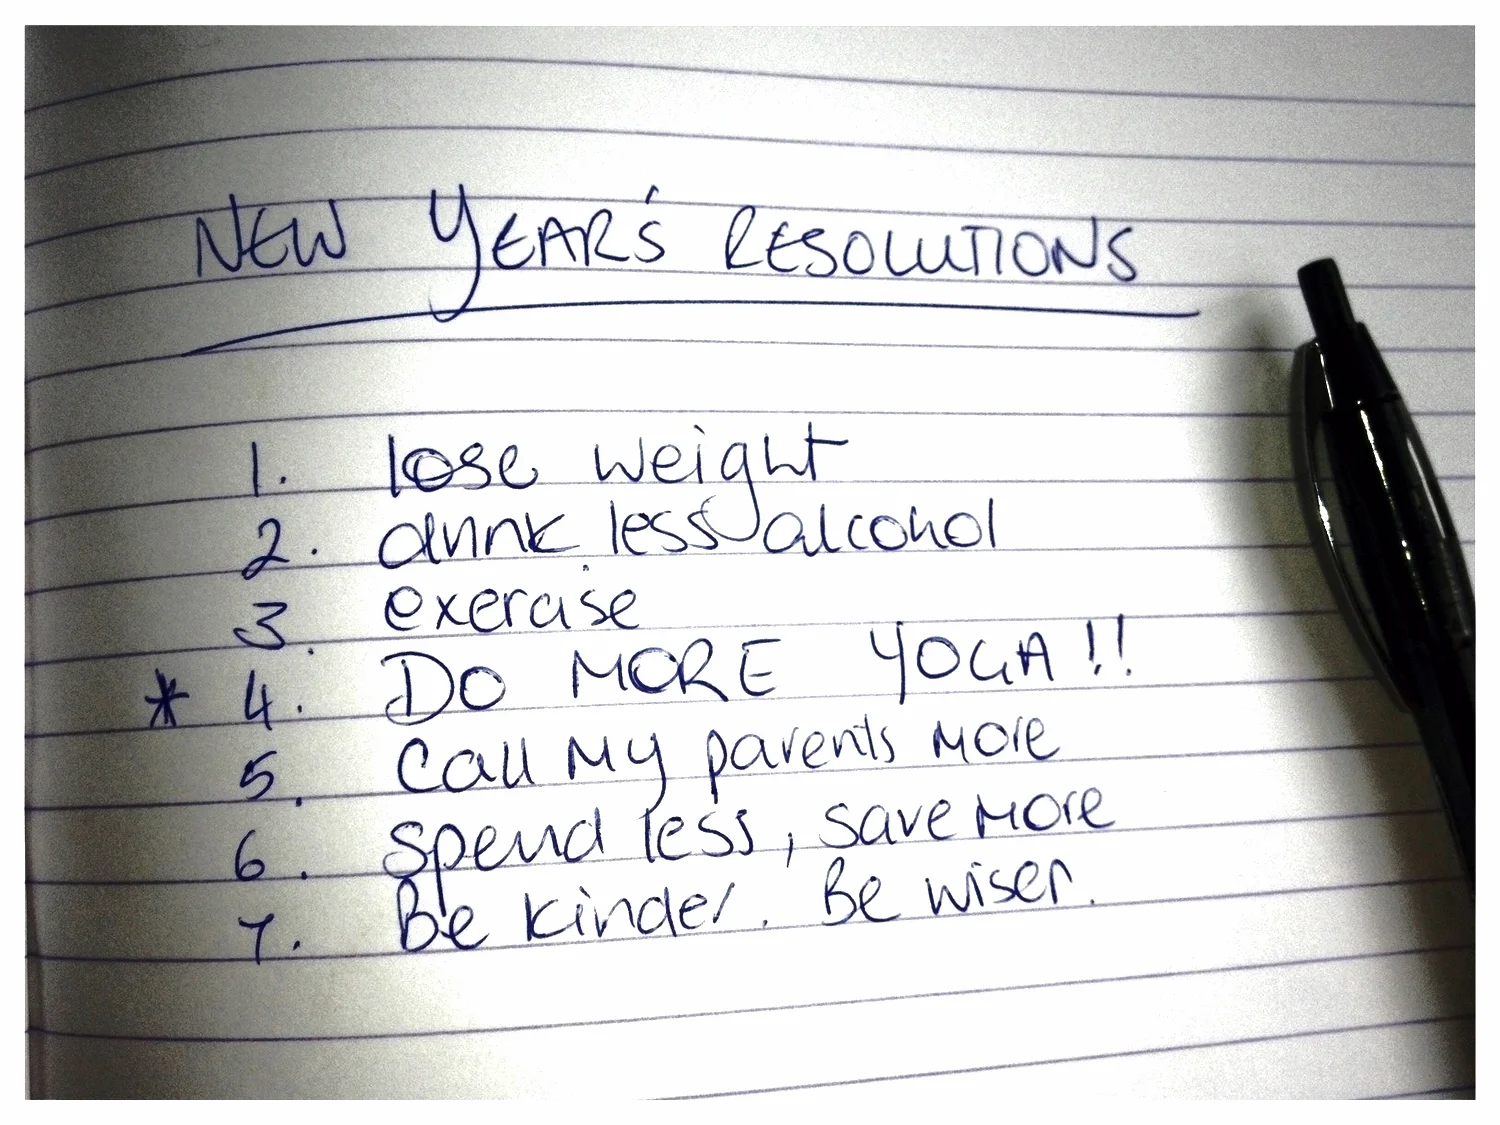 NEW YEAR'S RESOLUTIONS
1. lose weight
2. drink less alcohol
3. exercise
* 4. DO MORE YOGA!!
5. Call My parents More
6. spend less, save More
7. Be kinder. Be wiser.